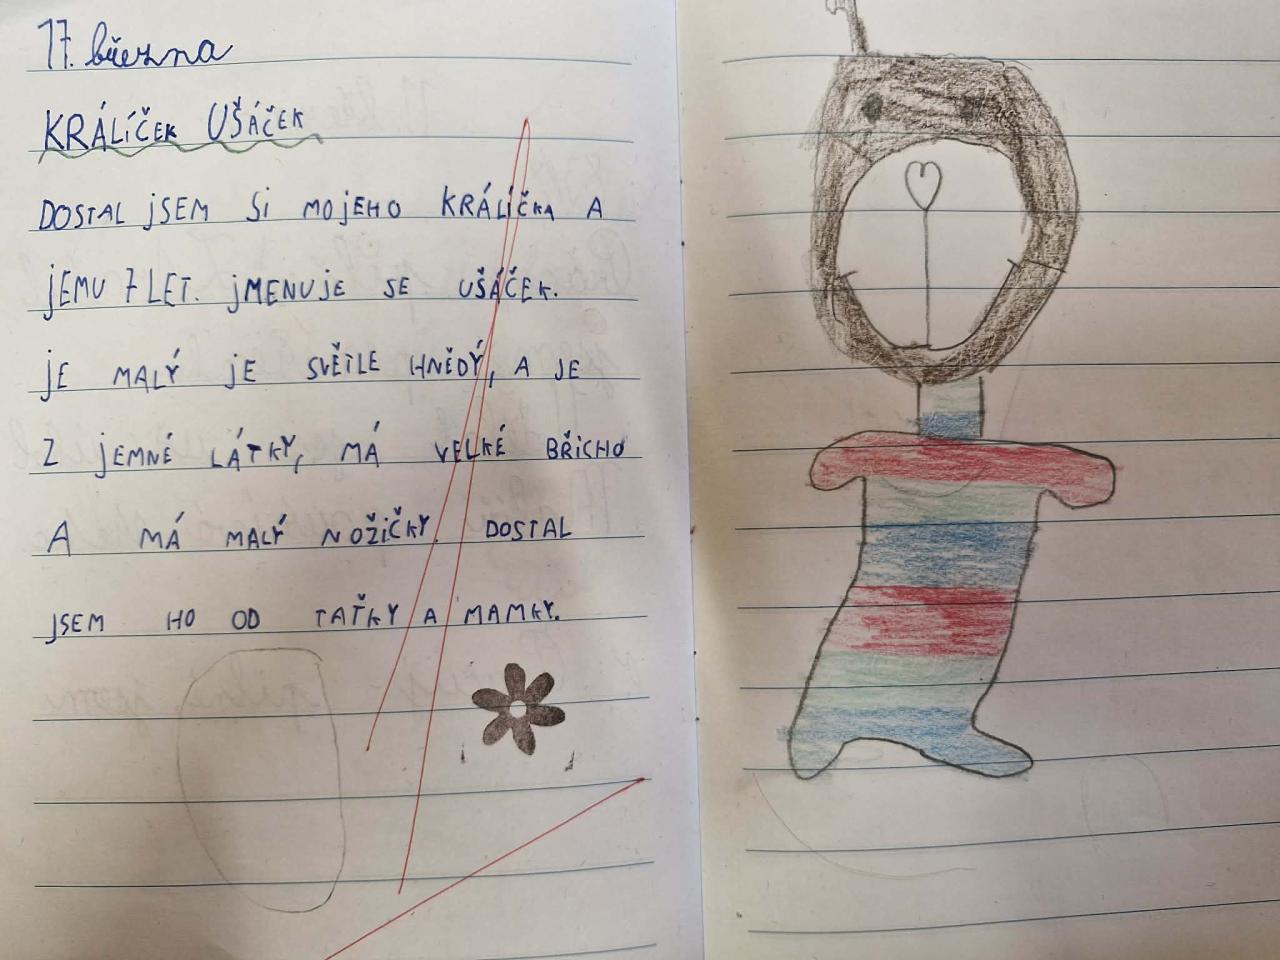 17. března
KRÁLÍČEK UŠÁČEK
DOSTAL JSEM SI MOJEHO KRÁLÍČKA A
JEMU 7 LET. JMENUJE SE UŠÁČEK.
JE MALÝ JE SVĚTLE HNĚDÝ, A JE
Z JEMNÉ LÁTKY, MÁ VELKÉ BŘICHO
A MÁ MALÝ NOŽIČKY. DOSTAL
JSEM HO OD TAŤKY A MAMKY.